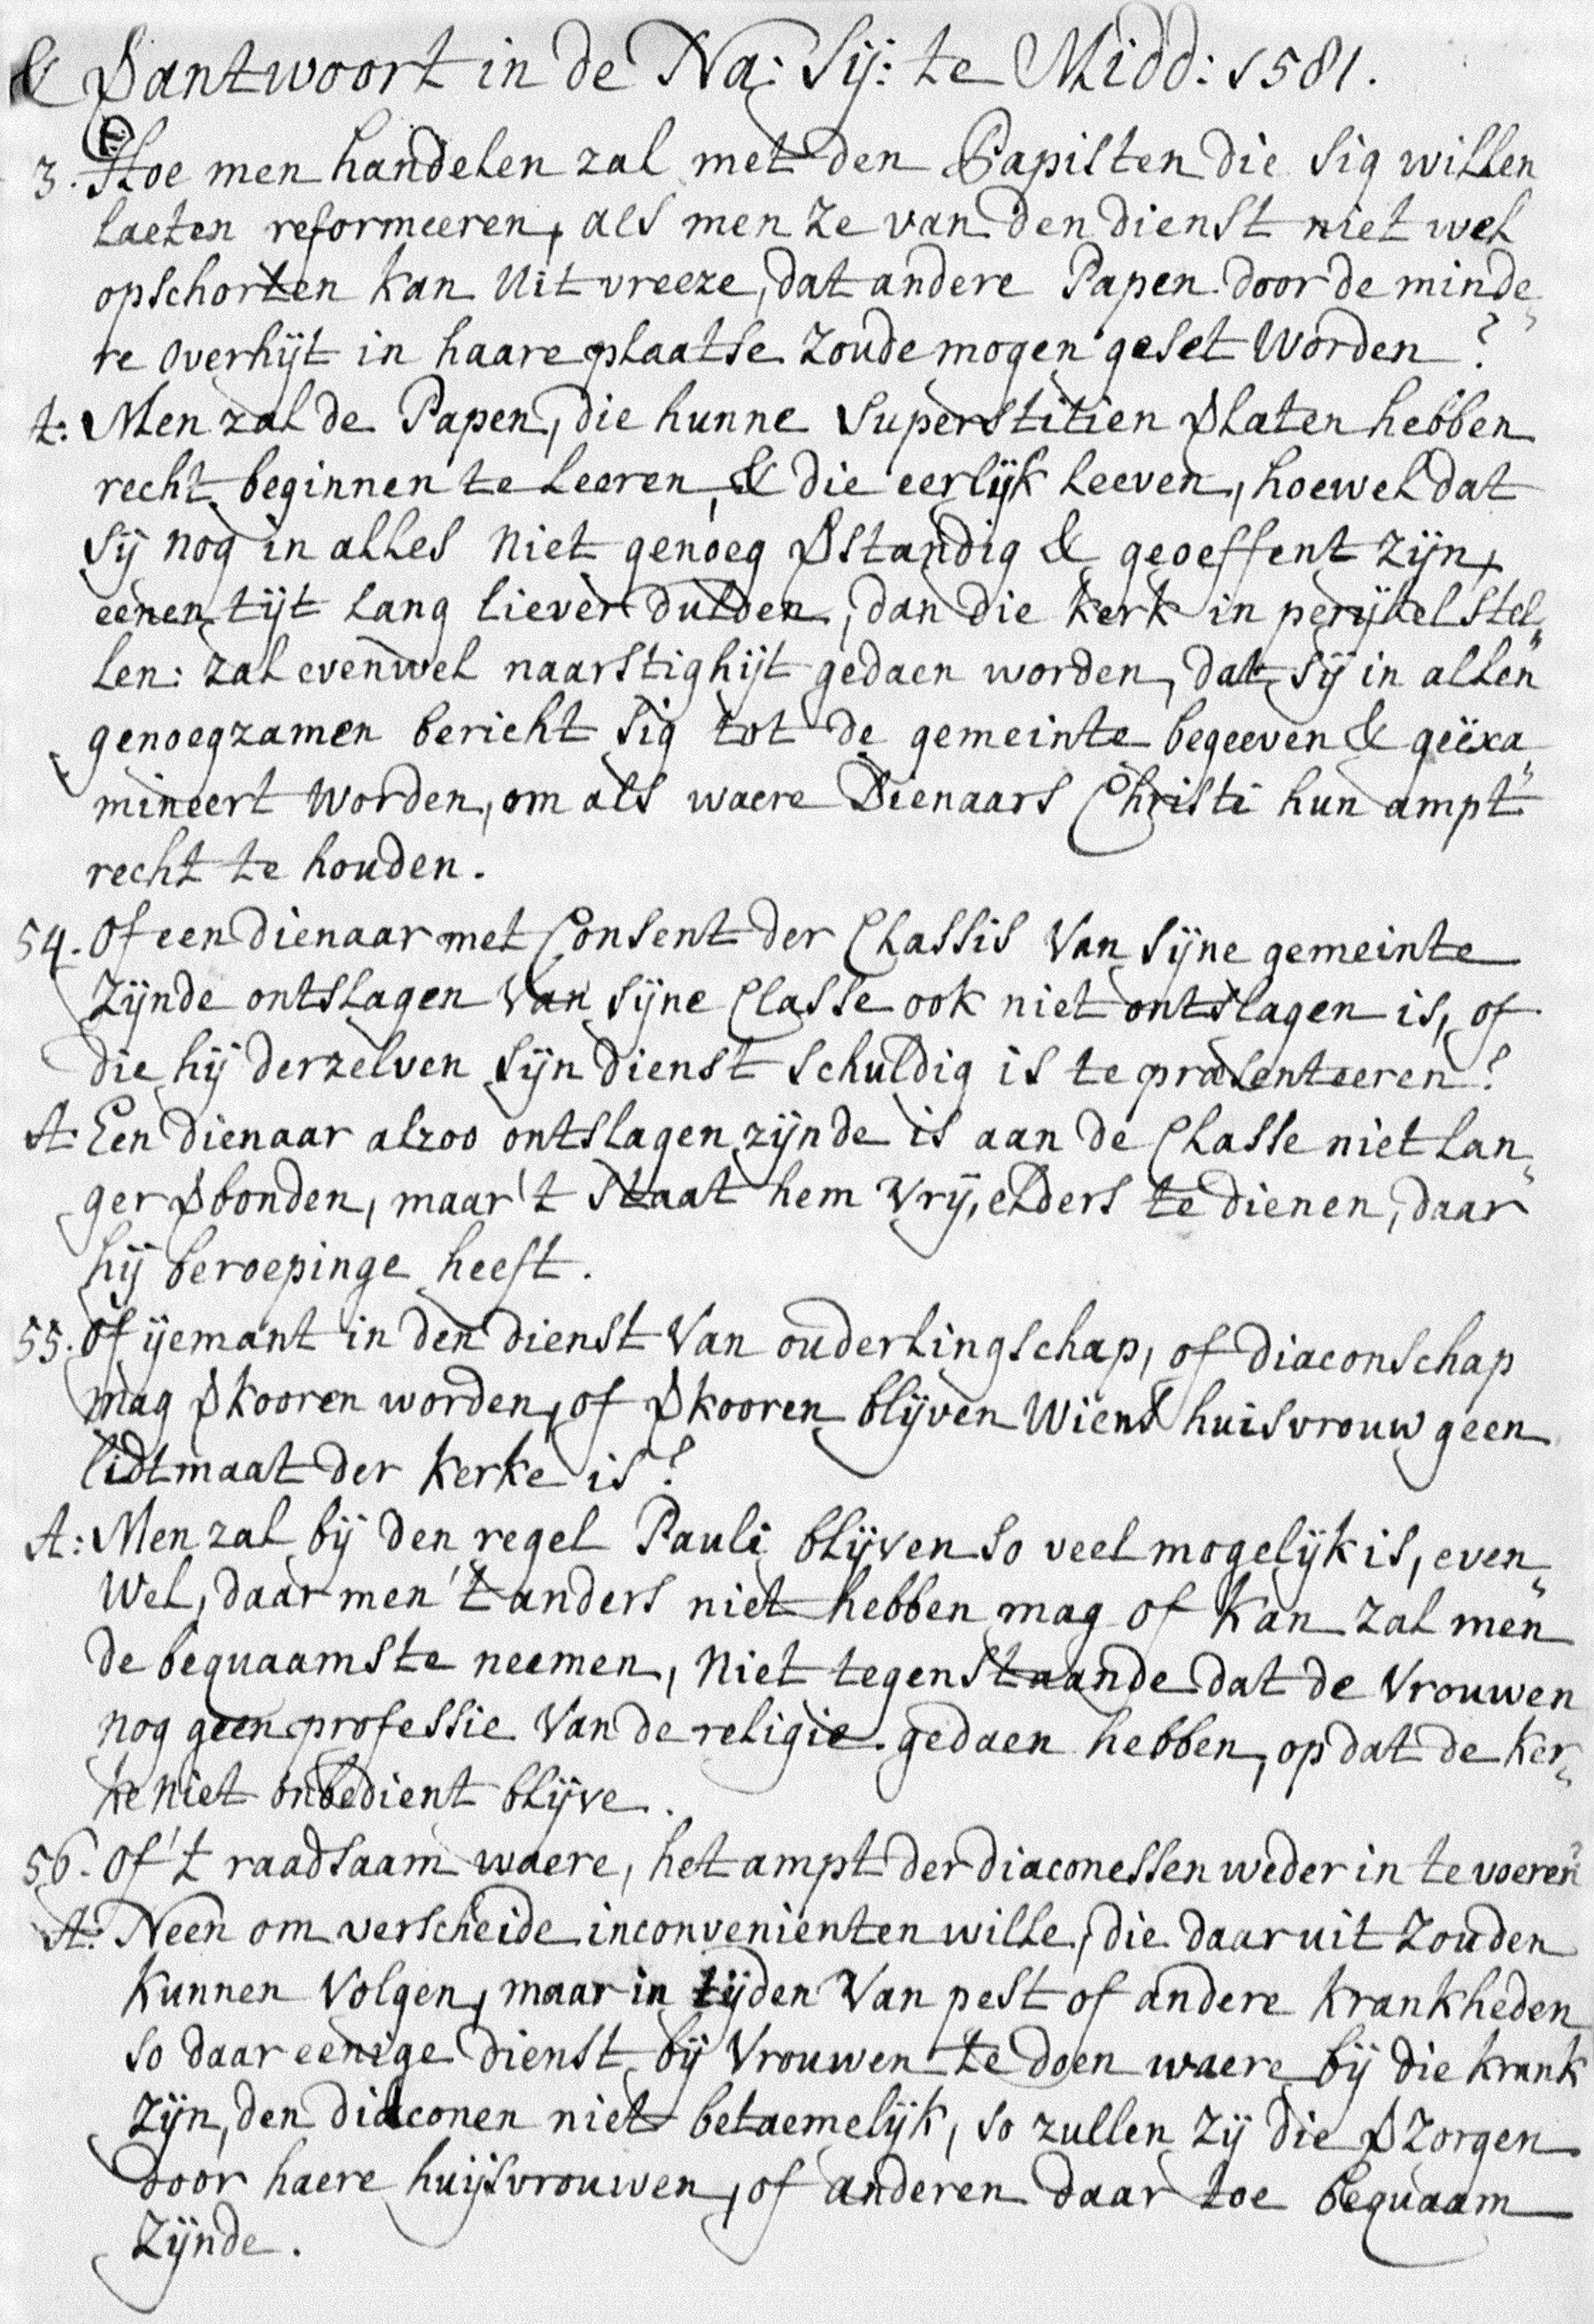 & ꝟantwoort in de Na: Sij: te Midd: 1581.
3. Hoe men handelen zal met den Papisten die sig willen
laeten reformeeren, als men ze van den dienst niet wel
opschorten kan uit vreeze, dat andere Papen door de minde„
re overhijt in haare plaatse zoude mogen geset worden?
t: Men zal de Papen, die hunne superstitien ꝟlaten hebben
recht beginnen te leeren, & die eerlijk leeven, hoewel dat
sij nog in alles niet genoeg ꝟstandig & geoeffent zijn,
eenen tijt lang liever dulden, dan die kerk in perijkel stel„
len: zal evenwel naarstighijt gedaen worden, dat sij in allen
genoegzamen bericht sig tot de gemeinte begeeven & geëxa„
mineert worden, om als waere Dienaars Christi hun ampt
recht te houden.
54. Of een dienaar met Consent der Classis van sijne gemeinte
zijnde ontslagen van sijne Classe ook niet ontslagen is, of
die hij derzelven sijn dienst schuldig is te præsenteeren?
At: Een dienaar alzoo ontslagen zijnde is aan de Classe niet lan„
ger ꝟbonden, maar 't staat hem vrij, elders te dienen, daar
hij beroepinge heeft.
55. Of ijemant in den dienst van ouderlingschap, of diaconschap
mag ꝟkooren worden, of ꝟkooren blijven wiens huisvrouw geen
lidtmaat der kerke is?
At: Men zal bij den regel Pauli blijven so veel mogelijk is, even„
wel, daar men 't anders niet hebben mag of kan zal men
de bequaamste neemen, niet tegenstaande dat de vrouwen
nog geen professie van de religie gedaen hebben, op dat de ker„
ke niet onbedient blijve.
56. Of 't raadsaam waere, het ampt der diaconessen weder in te voeren?
At: Neen om verscheide inconvenienten wille, die daar uit zouden
kunnen volgen, maar in tijden van pest of andere krankheden
so daar eenige dienst bij vrouwen te doen waere bij die krank
zijn, den diaconen niet betaemelijk, so zullen zij die ꝟzorgen
door haere huijsvrouwen, of anderen daar toe bequaam
zijnde.